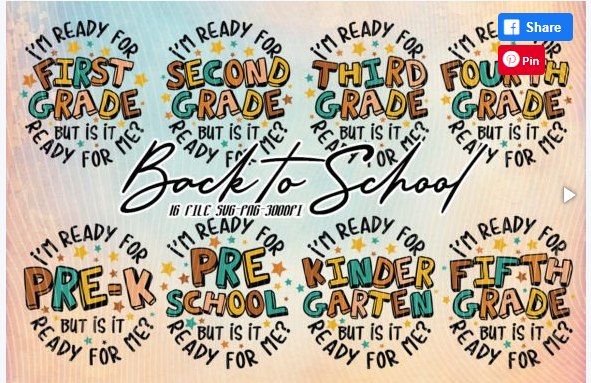 Share
Pin
I'M READY FOR
FIRST
GRADE
BUT IS IT
READY FOR ME?
I'M READY FOR
SECOND
GRADE
BUT IS IT
READY FOR ME?
I'M READY FOR
THIRD
GRADE
BUT IS IT
READY FOR ME?
I'M READY
FOURTH
GRADE
BUT IS IT
READY FOR ME?
Back to School
16 FILE SVG-PNG-300DPI
I'M READY FOR
PRE-K
BUT IS IT
READY FOR ME?
I'M READY FOR
PRE
SCHOOL
BUT IS IT
READY FOR ME?
I'M READY FOR
KINDER
GARTEN
BUT IS IT
READY FOR ME?
I'M READY FOR
FIFTH
GRADE
BUT IS IT
READY FOR ME?